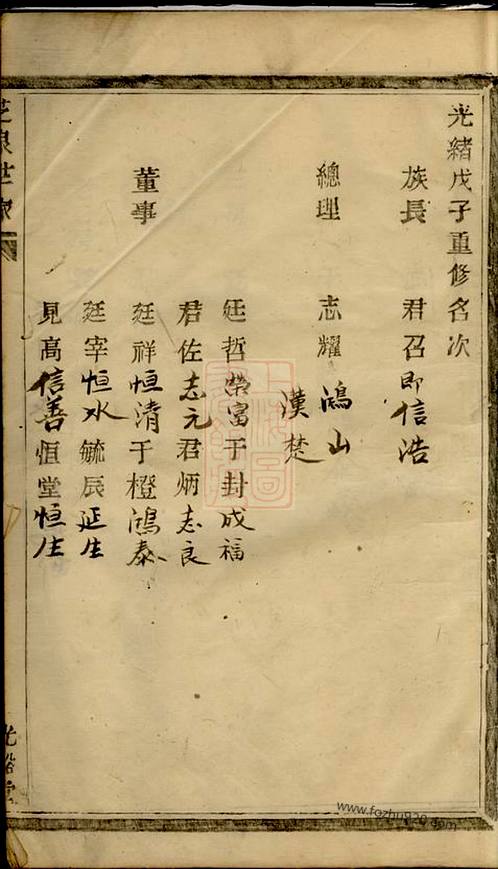 光緒戊子重修名次
族長 君召即信浩
總理 志耀 鴻山
漢楚
廷哲榮富于封成福
君佐志元君炳志良
董事 廷祥恒清于橙鴻泰
廷宰恒水毓辰延生
見高信善恒堂恒生
世家
www.fozhu920.com